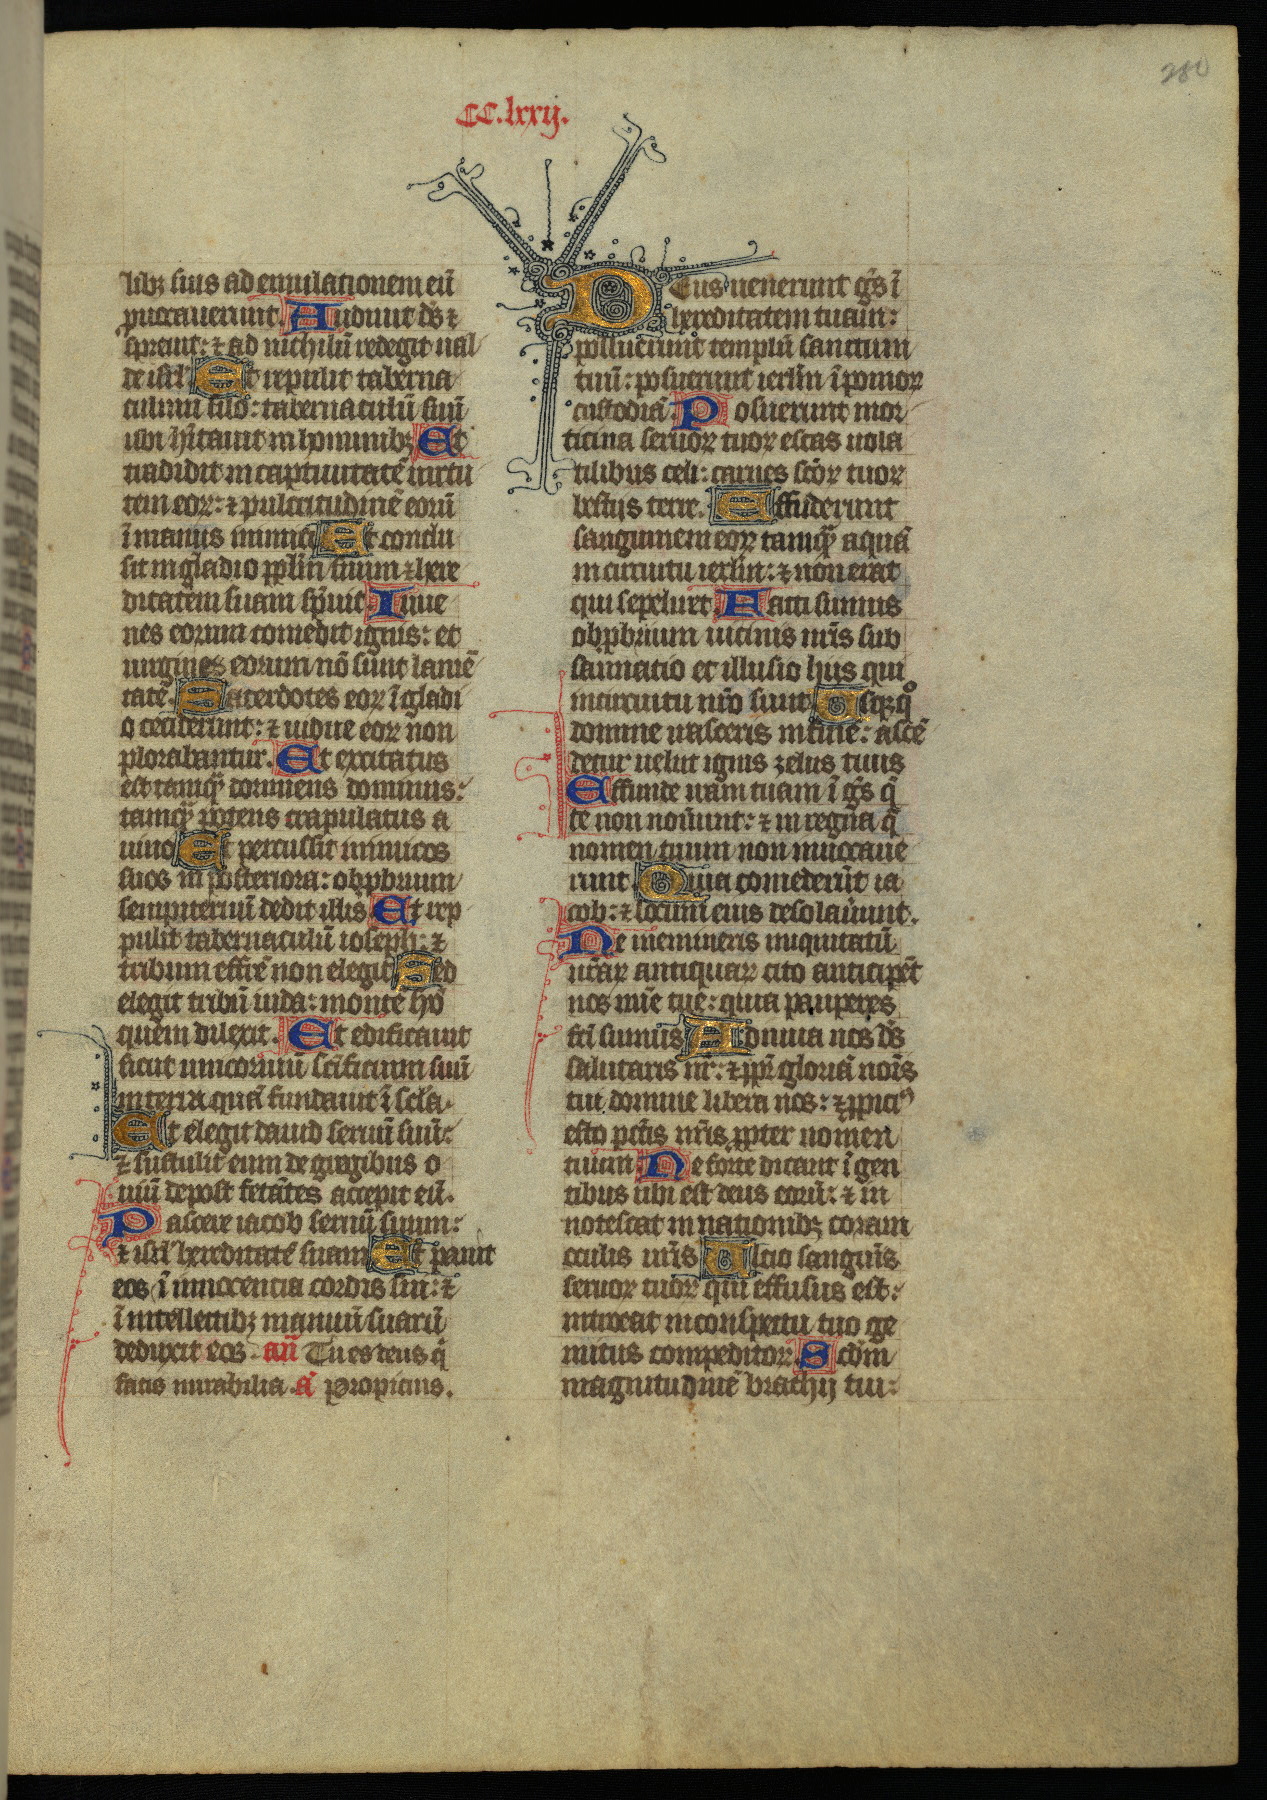 280
CC.lxxij.
libꝫ suis ad emulationem eū
ꝓuocauerunt. Audiuit ds̄ ⁊
spreuit: ⁊ ad nichilū redegit ual
de isrl̄ Et repulit taberna
culum silo: tabernaculū suū
ubi hītauit in hominibꝫ Et
tradidit in captiuitatē uirtu
tem eoꝝ: ⁊ pulcritudinē eorū
ī manus inimici Et conclu
sit in gladio ppl̄m suum ⁊ here
ditatem suam sp̄uit. Iuue
nes eorum comedit ignis: et
uirgines eorum nō sunt lamē
tate. Sacerdotes eoꝝ ī gladi
o ceciderunt: ⁊ uidue eoꝝ non
plorabantur. Et excitatus
est tamqͣ dormiens dominus:
tamqͣ potens crapulatus a
uino Et percussit inimicos
suos in posteriora: obꝓbrium
sempiternū dedit illis Et rep
pulit tabernaculū ioseph: ⁊
tribum effrē non elegit Sed
elegit tribū iuda: montē syō
quem dilexit. Et edificauit
sicut unicornuū sc̄ificium suū
in terra quā fundauit ī scl̄a.
Et elegit dauid seruū suū:
⁊ sustulit eum de gregibus o
uiū de post fetātes accepit eū.
Pascere iacob seruū suum:
⁊ isrl̄ hereditatē suam Et pauit
eos ī innocentia cordis sui: ⁊
ī intellectibꝫ manuū suarū
deduxit eos. an̄ Tu es deus q̄
facis mirabilia. a̅ Propicius.
Deus uenerunt gēs ī
hereditatem tuam:
polluerunt templū sanctum
tuū: posuerunt ierlm̄ ī pomoꝝ
custodiā. Posuerunt mor
ticina seruoꝝ tuoꝝ escas uola
tilibus celi: carnes sc̄oꝝ tuoꝝ
bestiis terre. Effuderunt
sanguinem eoꝝ tamqͣ aquā
in circuitu ierlm̄: ⁊ non erat
qui sepeliret. Facti sumus
obꝓbrium uicinis nr̄is sub
sannatio et illusio hiis qui
in circuitu nr̄o sunt Usqꝫ q̊
domine irasceris in finē: ascē
detur uelut ignis zelus tuus
Effunde iram tuam ī gēs q̄
te non nouerunt: ⁊ in regna q̄
nomen tuum non inuocaue
runt. Quia comederūt ia
cob: ⁊ locum eius desolauerunt.
Ne memineris iniquitatū
nr̄aꝝ antiquaꝝ cito anticipēt
nos mīe tue: quia pauperes
fc̄i sumus Adiuua nos ds̄
salutaris nr̄: ⁊ ꝓpt̄ gloriā nois
tui domine libera nos: ⁊ ꝓpiciꝰ
esto pcc̄is nr̄is ꝓpter nomen
tuum Ne forte dicant ī gen
tibus ubi est deus eorū: ⁊ in
notescat in nationibꝫ coram
oculis nr̄is Ultio sanguīs
seruoꝝ tuoꝝ qui effusus est:
introeat in conspectu tuo ge
mitus compeditoꝝ. Scd̄m
magnitudinē brachij tui: